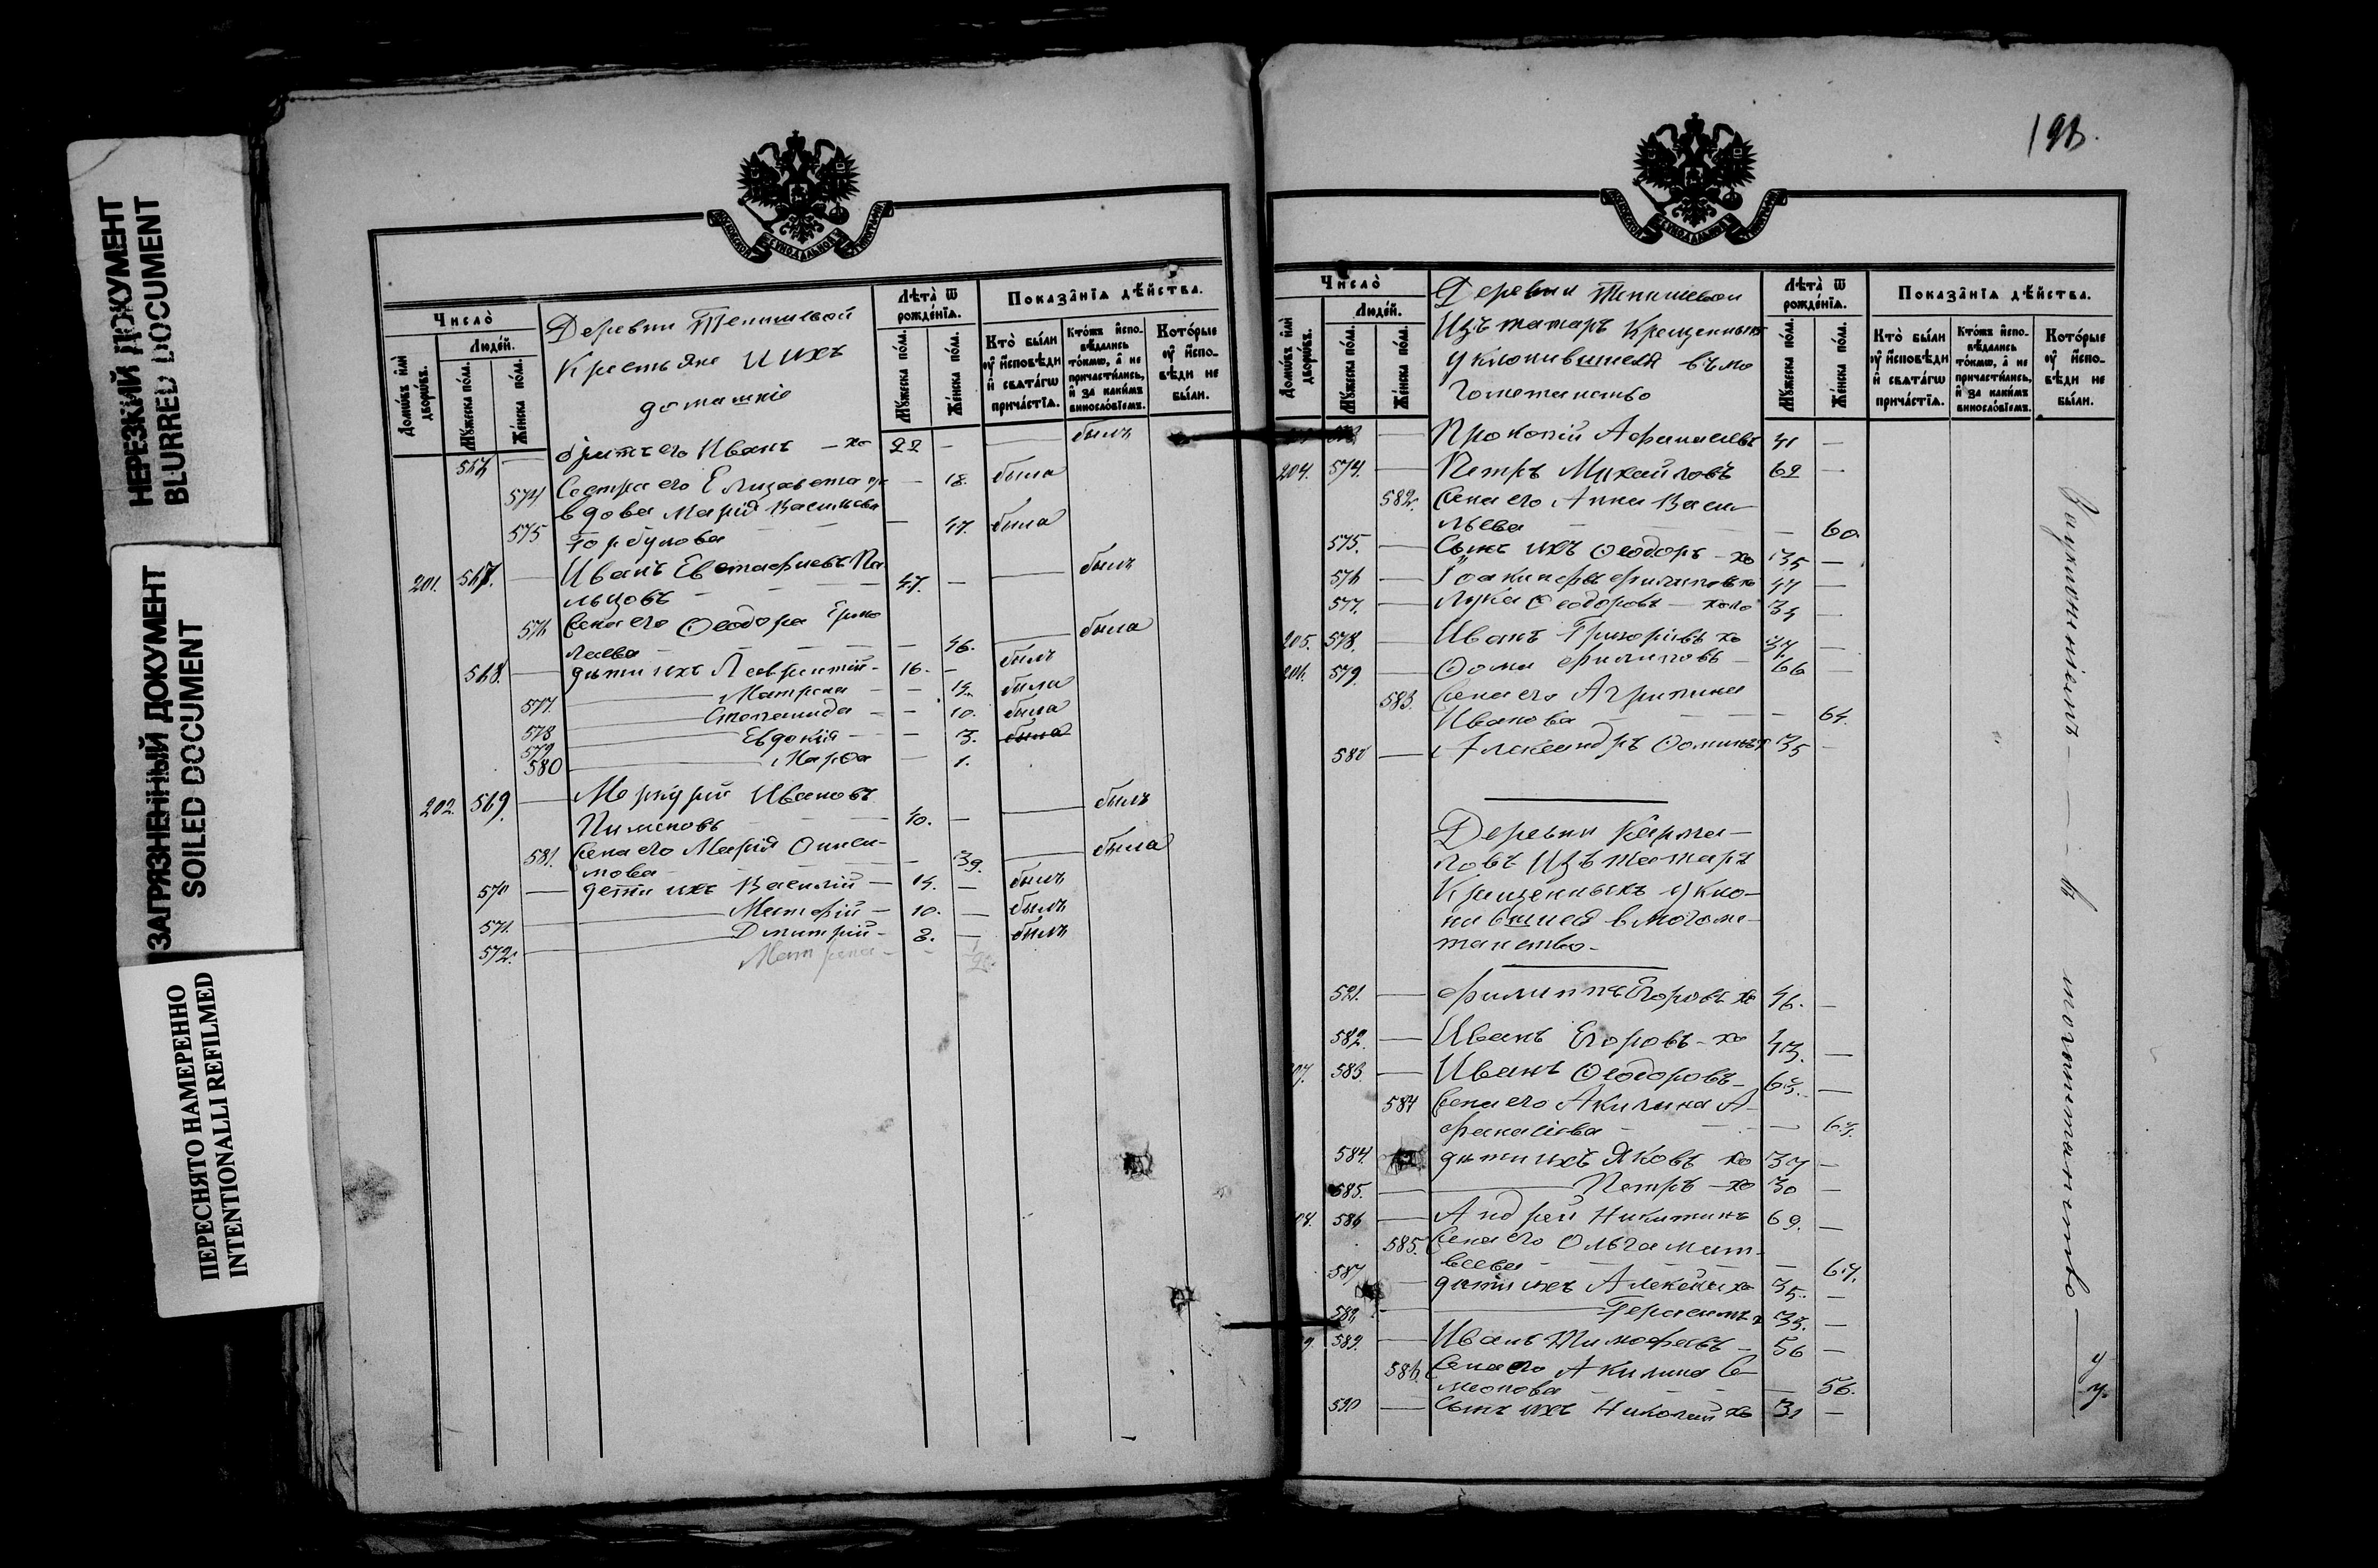 НЕРЕЗКИЙ ДОКУМЕНТ
BLURRED DOCUMENT
ЗАГРЯЗНЕННЫЙ ДОКУМЕНТ
SOILED DOCUMENT
ПЕРЕСНЯТО НАМЕРЕННО
INTENTIONALLI REFILMED
МОСКОВСКОЙ СѴНОДАЛЬНОЙ ТИПОГРАФІИ
Число̀
Людéй.
Домѡ́въ и҆лѝ дворѡ́въ.
Мꙋ́жеска по́ла.
Же́нска по́ла.
Деревни Тенишевой
Крестьяне и ихъ
домашніе
Лѣта̀ ѿ рождéнїѧ.
Мꙋ́жеска по́ла.
Же́нска по́ла.
Показа̑нїѧ дѣ́йства.
Кто̀ бы́ли ᲂу҆ и҆сповѣ́ди и҆ свѧта́гѡ причáстїѧ.
Кто́жъ и҆спо-вѣ́дались то́кмѡ, а҆ не причасти́лись, и҆ за каки́мъ винослóвїемъ.
Кото́рые ᲂу҆ и҆спо-вѣди не бы́ли.
братъ его Иванъ — хо 22 — — былъ
574 Сестра его Елизавета — 18. была
575 вдова Марія Васильева
Горбунова — 47. была
201. 567. — Иванъ Евстафьевъ Па
льцовъ 47. — — былъ
576 Жена его Ѳеодора Ермо
лаева — 46. — была
568. — дѣти ихъ Лаврентій — 16. — былъ
577 Матрена — была
578 Степанида — 10. была
579 Евдокія — 3. была
580 Марѳа — 1.
202. 569. — Меркурій Ивановъ
Пимановъ 40. — — былъ
581. Жена его Марія Ониси-
мова — 39. — была
570 — дѣти ихъ Василій — 14. — былъ
571. Матѳій — 10. — былъ
572. Димитрій — 8. — былъ
Матрена
198.
МОСКОВСКОЙ СѴНОДАЛЬНОЙ ТИПОГРАФІИ
Число̀
Людéй.
Домѡ́въ и҆лѝ дворѡ́въ.
Мꙋ́жеска по́ла.
Же́нска по́ла.
Деревни Тенишевой
Изъ татаръ Крещенныхъ
уклонившіеся въ мо
гометанство
Лѣта̀ ѿ рождéнїѧ.
Мꙋ́жеска по́ла.
Же́нска по́ла.
Показа̑нїѧ дѣ́йства.
Кто̀ бы́ли ᲂу҆ и҆сповѣ́ди и҆ свѧта́гѡ причáстїѧ.
Кто́жъ и҆спо-вѣ́дались то́кмѡ, а҆ не причасти́лись, и҆ за каки́мъ винослóвїемъ.
Кото́рые ᲂу҆ и҆спо-вѣди не бы́ли.
— Прокопій Афанасьевъ 41 —
204. 574. — Петръ Михайловъ 62 —
582. Жена его Анна Васи-
льева — 60
575. — Сынъ ихъ Ѳеодоръ — хо 35 —
576 — Іоакинфъ Филиповъ 47 —
577. — Лука Ѳеодоровъ — холо 34 —
205. 578. — Иванъ Григорьевъ хо 37 —
206. 579. — Ѳома Филиповъ — 66 —
583. Жена его Агрипина
Иванова — 64.
580 — Александръ Ѳоминъ 35 —
Деревни Карма-
Изъ татаръ
Крещенныхъ укло-
нившіеся в могоме-
танство.
— Филиппъ Егоровъ хо 46. —
582. — Иванъ Егоровъ — хо 43. —
583 — Иванъ Ѳеодоровъ — 65. —
584 Жена его Акилина А-
фанасьева —
584. дѣти ихъ Яковъ хо 37 —
585. — Петръ — хо 30 —
586 — Андрей Никитинъ 69. —
585. Жена его Ольга Мат-
веева — 67.
587 — дѣти ихъ Алексѣй хо 35. —
Герасимъ 33. —
589. — Иванъ Тимофеевъ — 56 —
586. Жена его Акилина Се-
меонова — 56.
590 — Сынъ ихъ Николай хо 31 —
въ могометанство